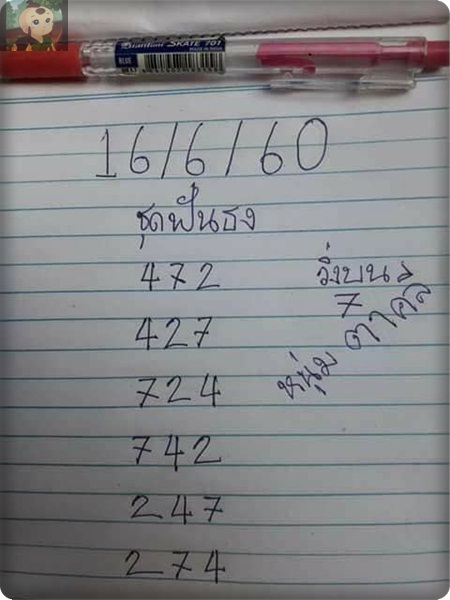 Quantum SKATE 701
BLUE
16/6/60
ชุดฟันธง
472
วิ่งบน
427
7
724
หนุ่ม ตาคลี
742
247
274